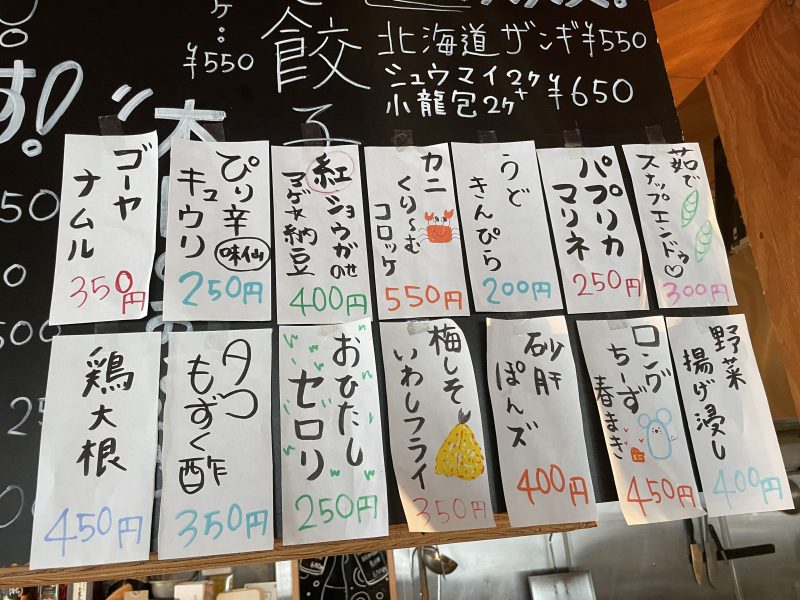 ¥550
餃子
北海道ザンギ ¥550
シュウマイ2ヶ+
小龍包2ヶ ¥650
す!
ゴーヤ
ナムル
350円
ぴり辛
キュウリ
味仙
250円
紅ショウガのせ
マグネ納豆
400円
カニ
くり〜む
コロッケ
550円
うど
きんぴら
200円
パプリカ
マリネ
250円
茹で
スナップエンドゥ♡
300円
鶏大根
450円
タコ
もずく酢
350円
おひたし
セロリ
250円
梅しそ
いわしフライ
350円
砂肝
ぽんズ
400円
ロング
ちーず
春まき
450円
野菜
揚げ浸し
400円